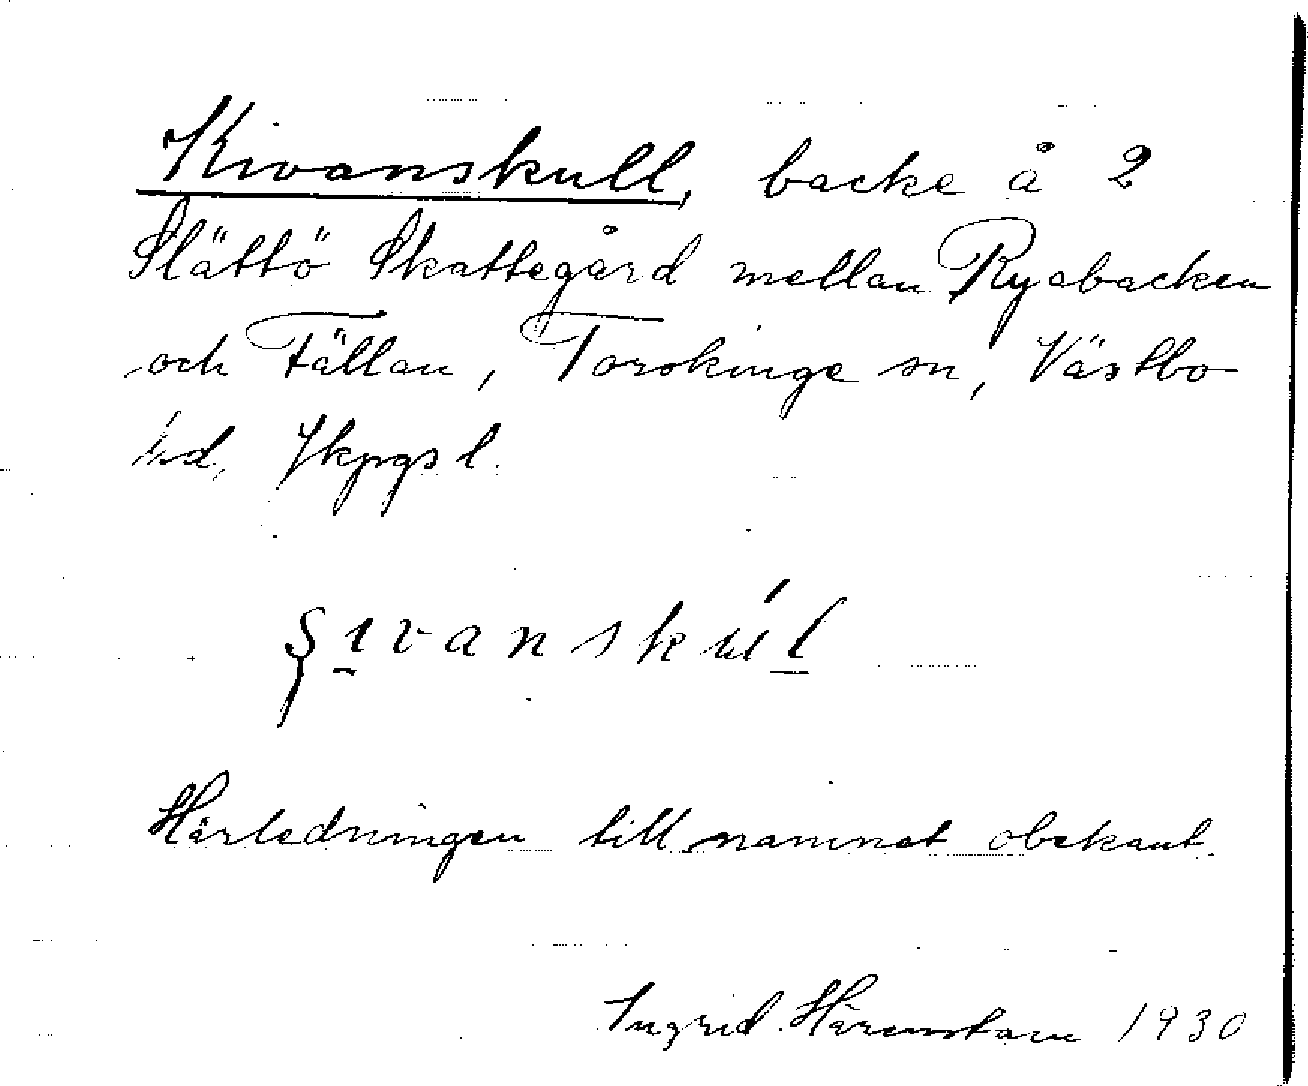 Kivanskull, backe å 2
Slättö Skattegård mellan Ryabacken
och Fällan, Torskinge sn, Västbo
hd, Jkpgs l.
ʂɩvanskúl
Härledningen till namnet obekant.
Ingrid Härenstam 1930